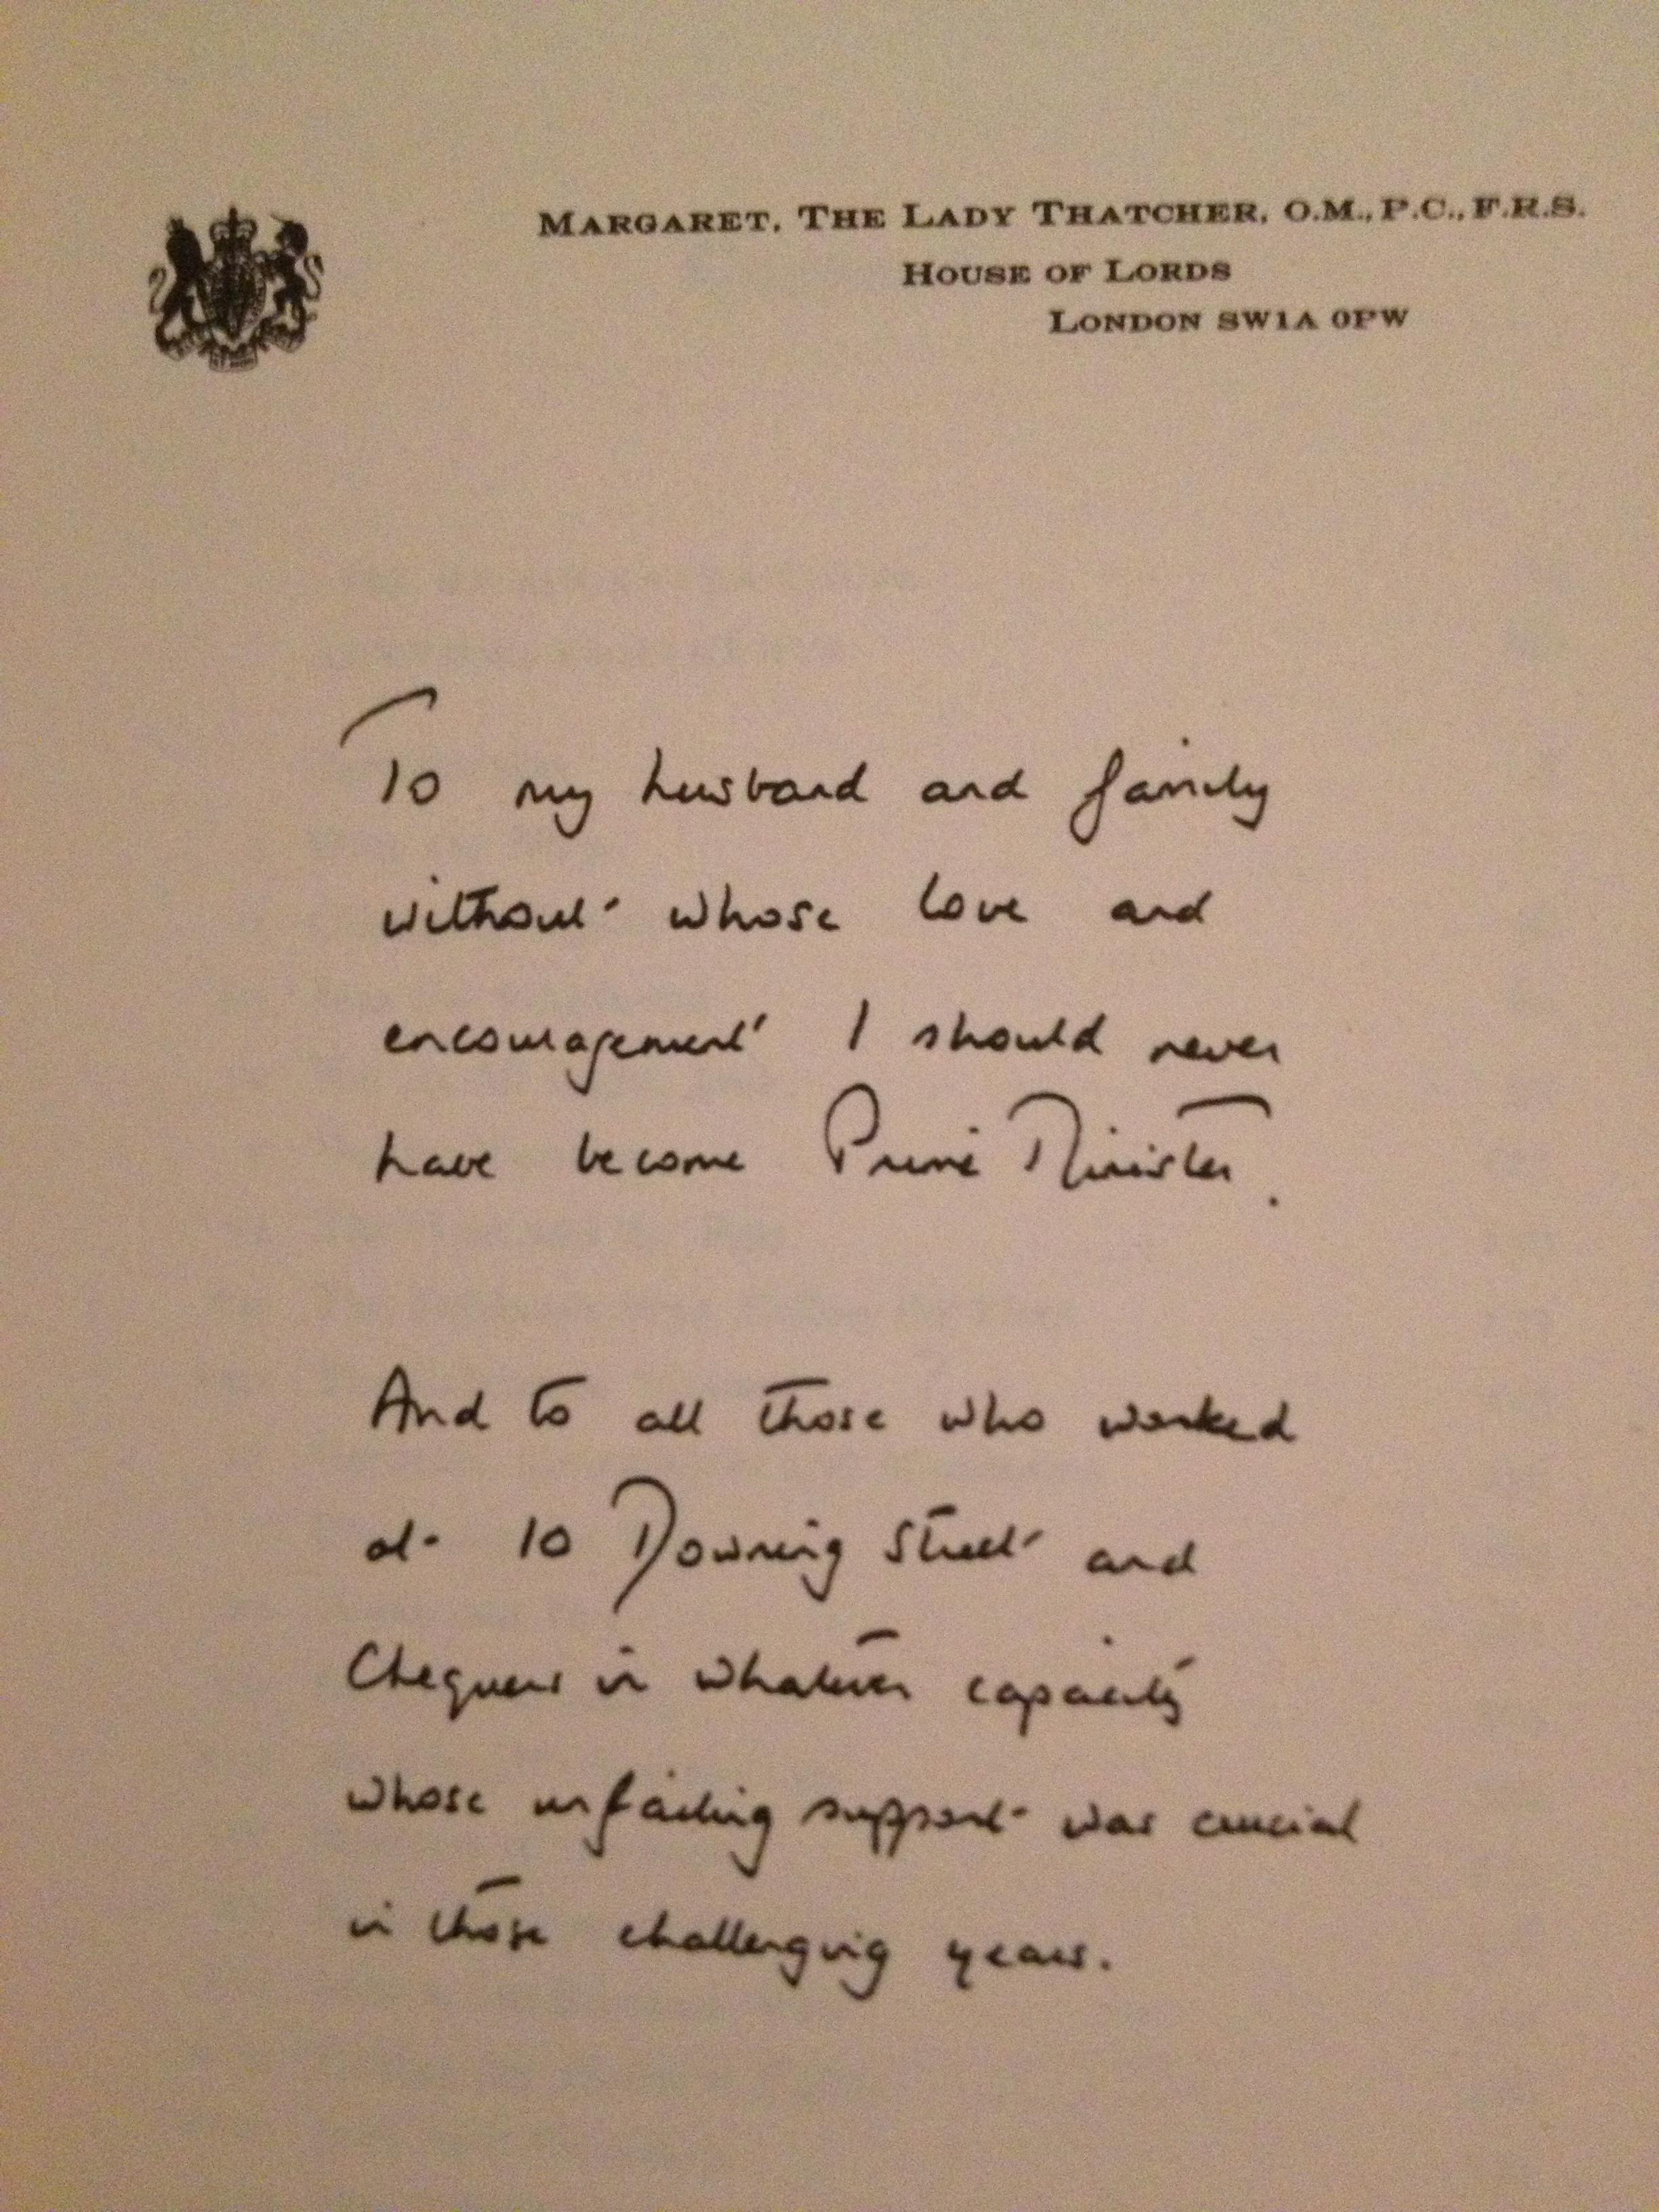 MARGARET, THE LADY THATCHER, O.M., P.C., F.R.S.
HOUSE OF LORDS
LONDON SW1A 0PW
To my husband and family
without whose love and
encouragement I should never
have become Prime Minister.
And to all those who worked
at 10 Downing Street and
Chequers in whatever capacity
whose unfailing support was crucial
in those challenging years.